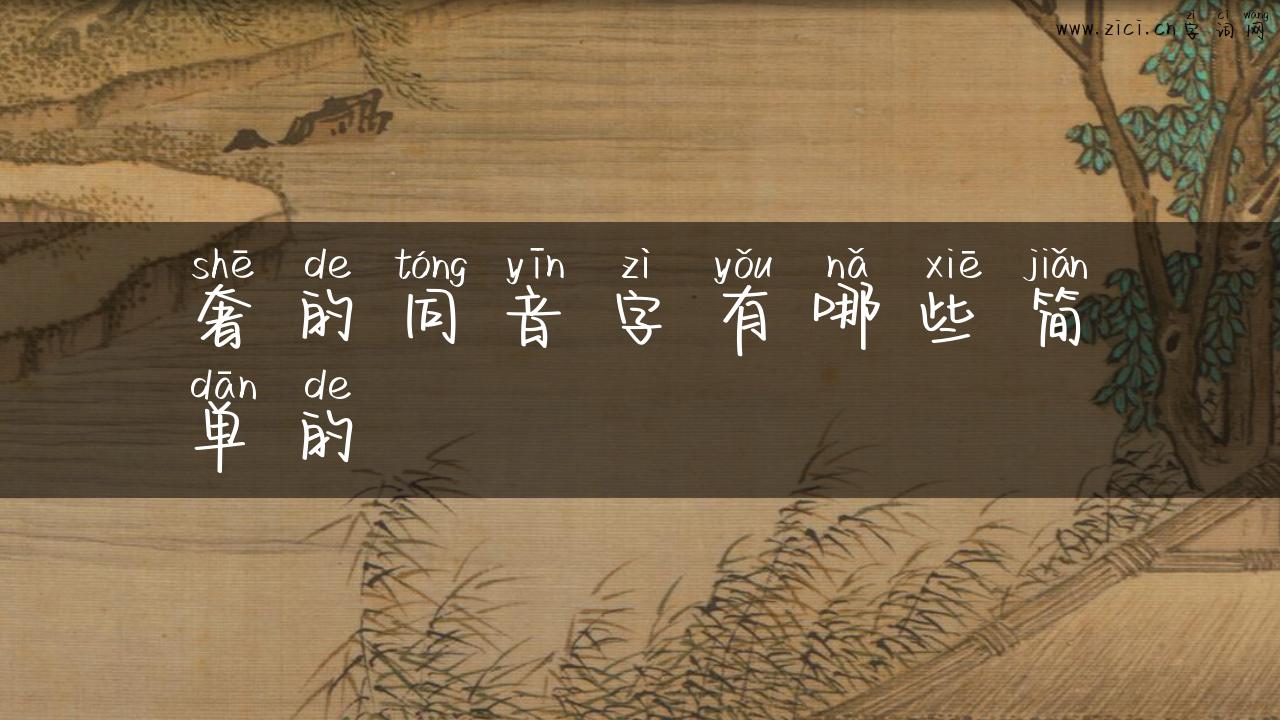 zì cí wǎng
www.zici.cn字词网
shē de tóng yīn zì yǒu nǎ xiē jiǎn
奢的同音字有哪些简
dān de
单的